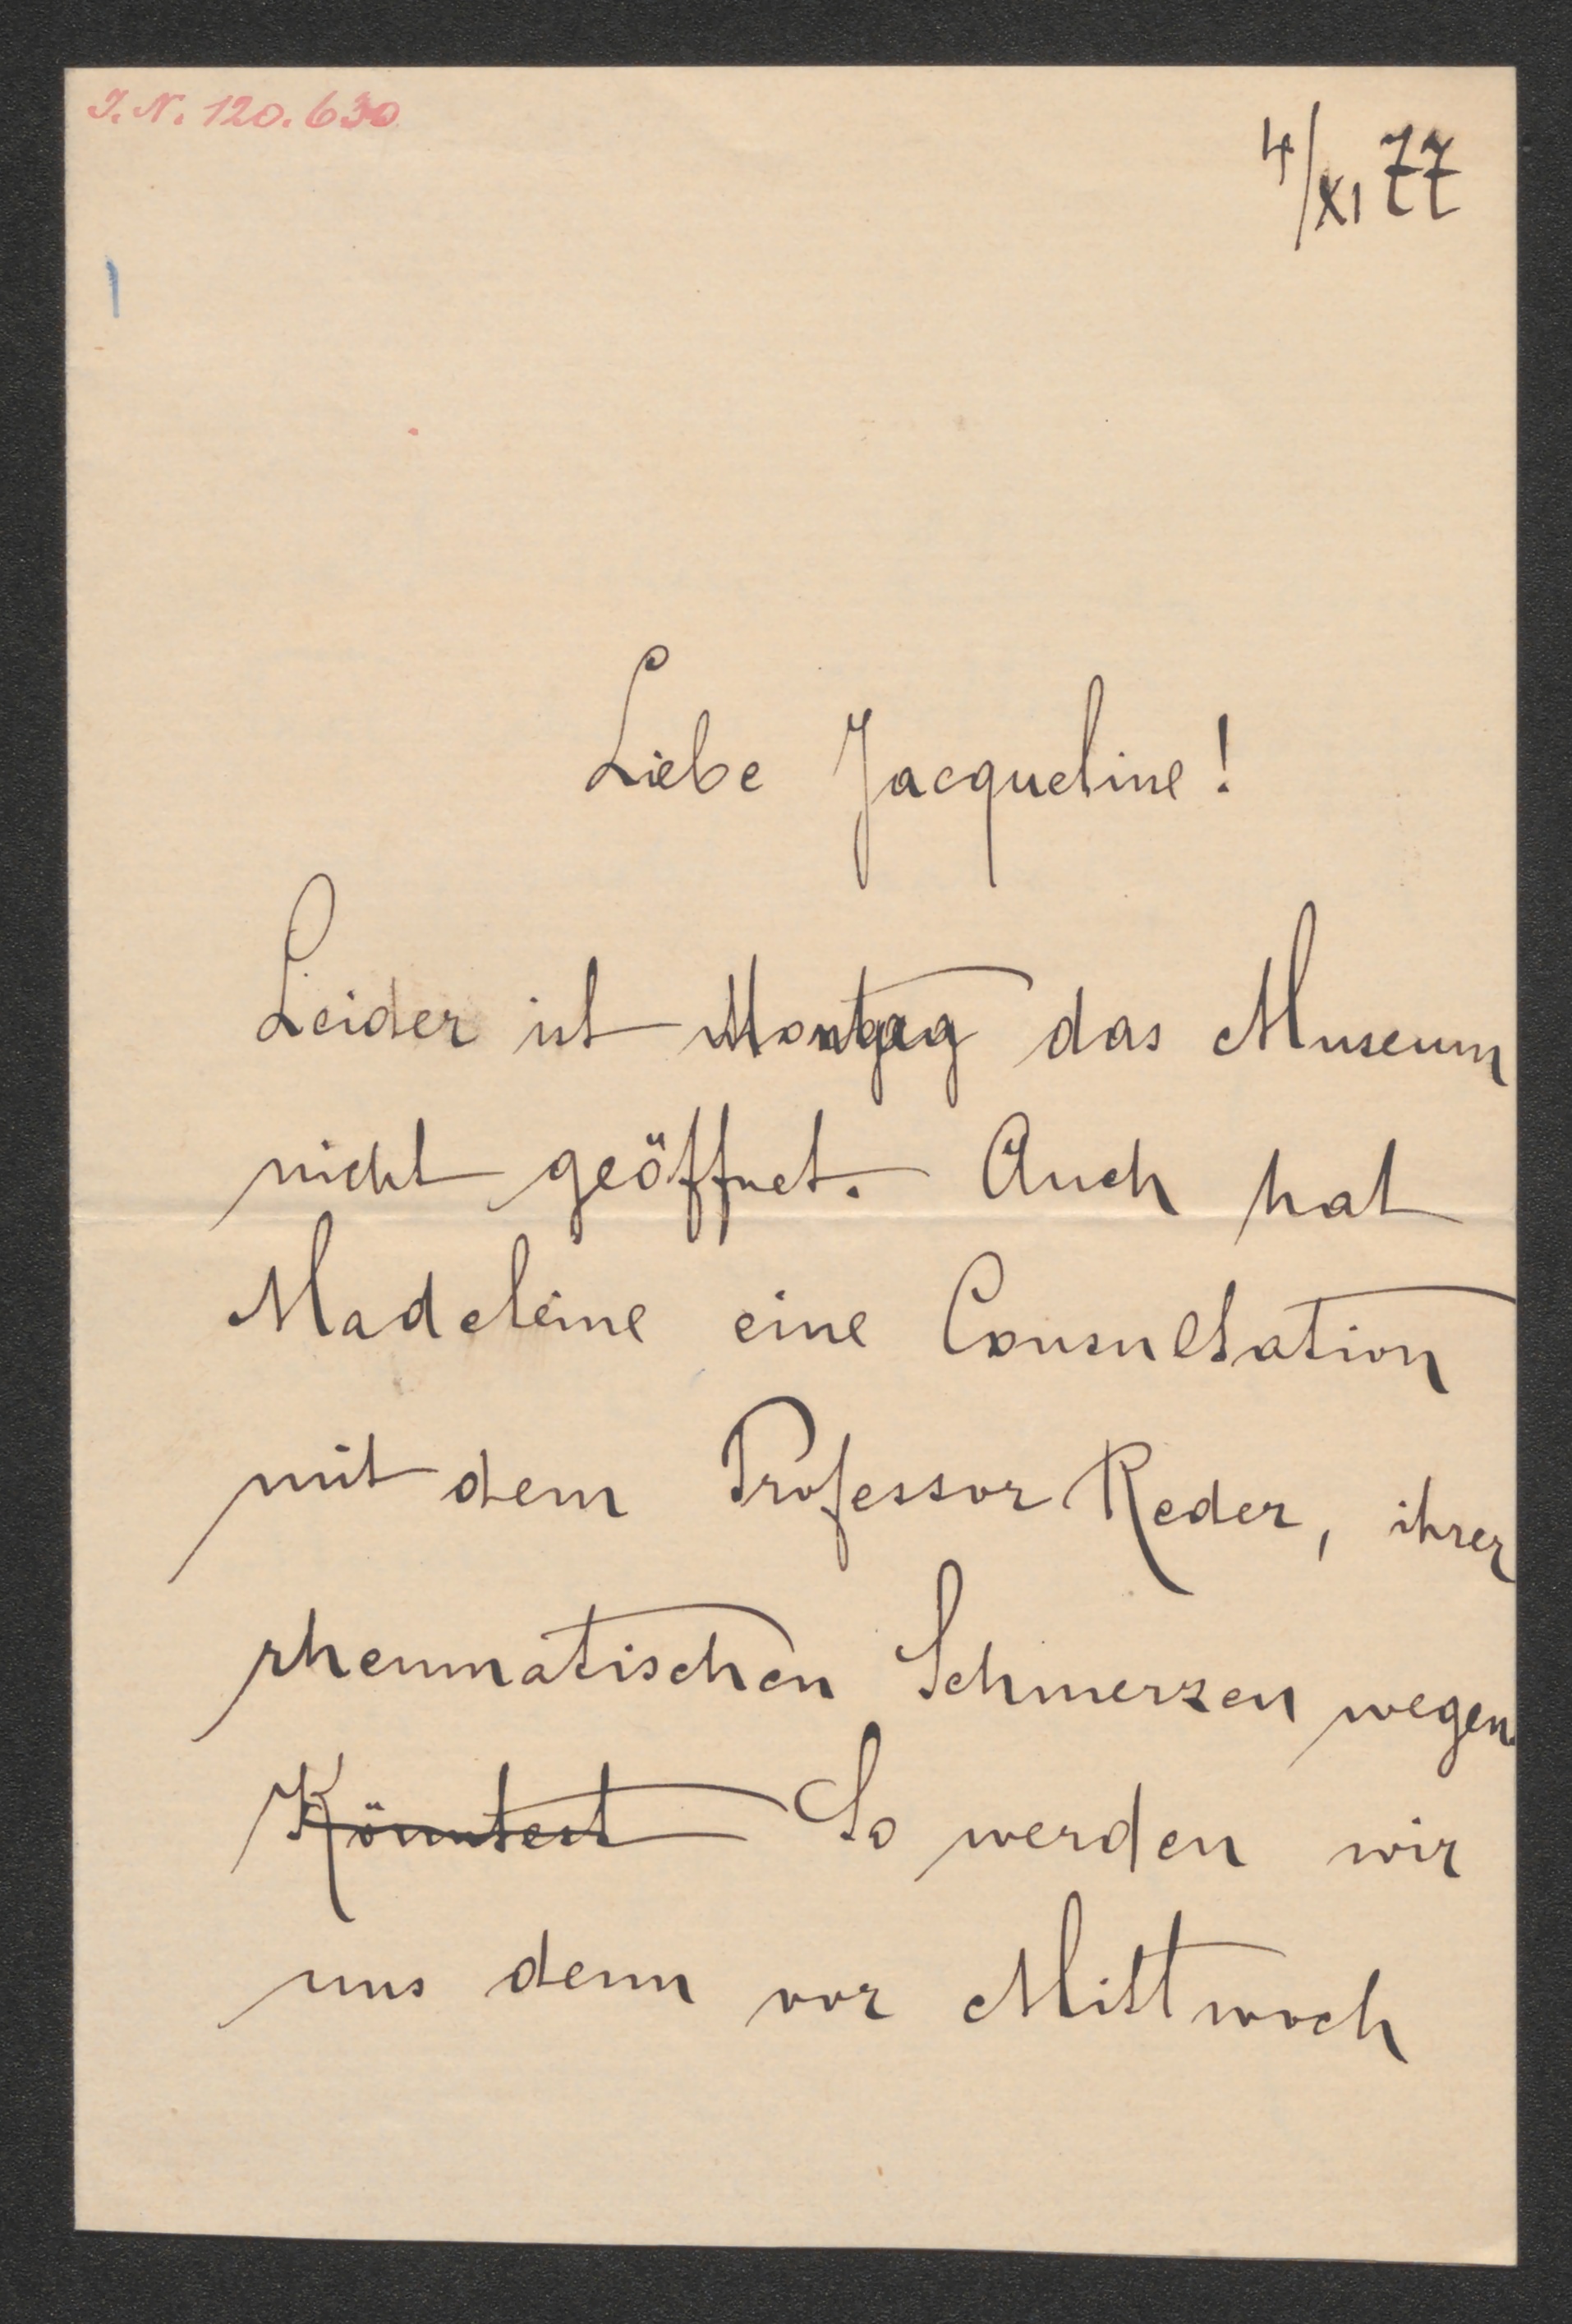 I.N. 120.630
4/XI 77
Liebe Jacqueline!
Leider ist Montag das Museum
nicht geöffnet. Auch hat
Madeleine eine Consultation
mit dem Professor Reder, ihrer
rheumatischen Schmerzen wegen.
Könntest So werden wir
uns denn vor Mittwoch